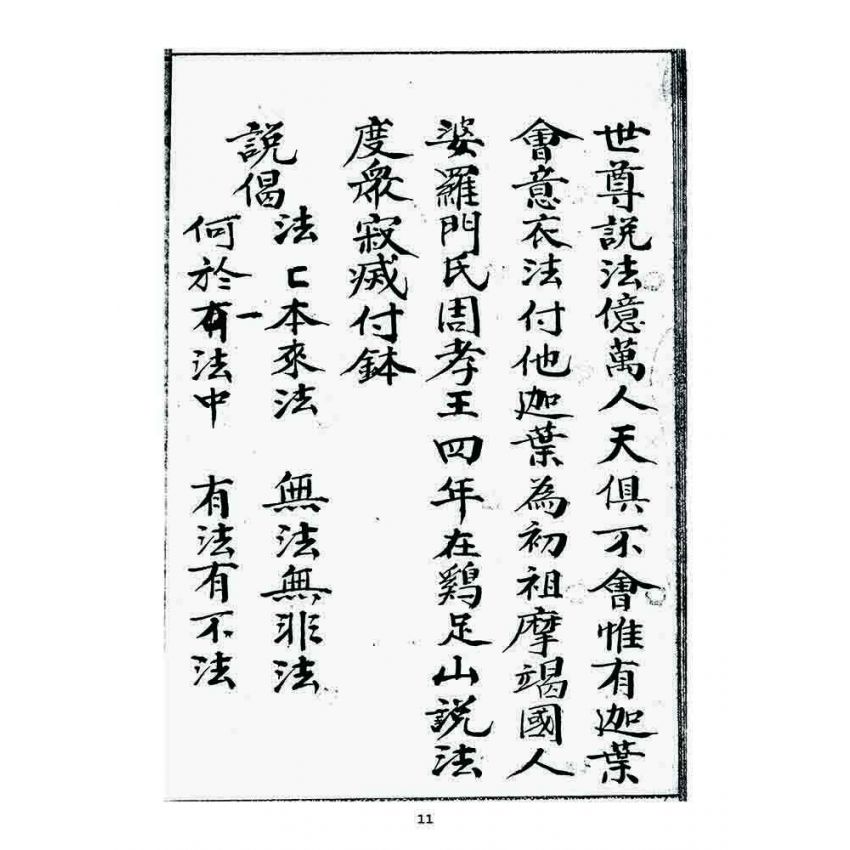 世尊説法億萬人天俱不會惟有迦葉
會意衣法付他迦葉為初祖摩竭國人
婆羅門氏周孝王四年在鷄足山説法
度衆寂滅付鉢
説偈
法匕本來法 無法無非法
何於一有法中 有法有不法
11